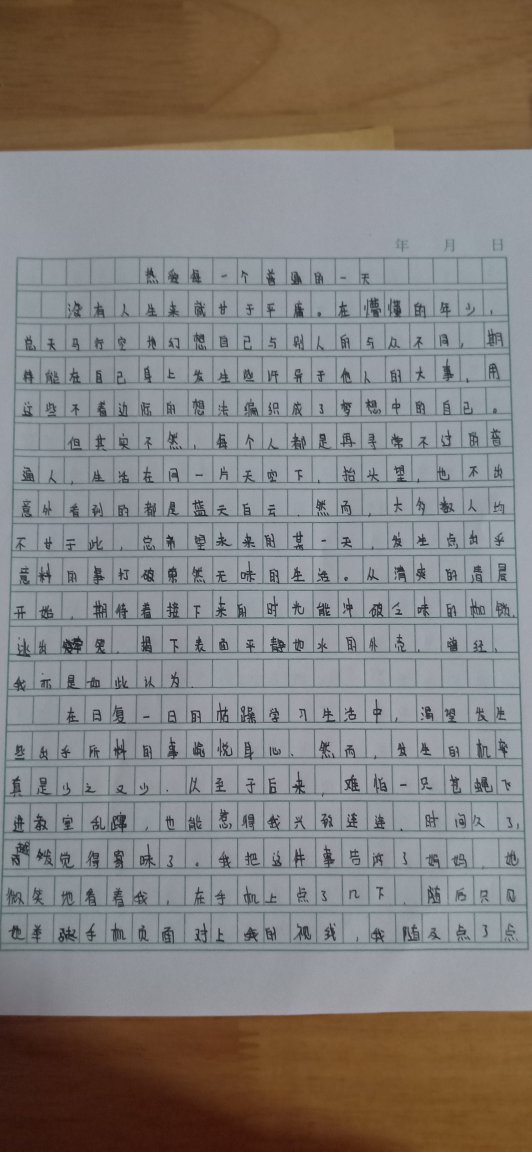 年 月 日
热爱每一个普通的一天
没有人生来就甘于平庸。在懵懂的年少，
总天马行空地幻想自己与别人的与众不同，期
待能在自己身上发生些许异于他人的大事，用
这些不着边际的想法编织成了梦想中的自己。
但其实不然，每个人都是再寻常不过的普
通人，生活在同一片天空下，抬头望，也不出
意外看到的都是蓝天白云。然而，大多数人均
不甘于此，总希望未来的某一天，发生点出乎
意料的事打破索然无味的生活。从清爽的清晨
开始，期待着接下来的时光能冲破乏味的枷锁，
逃出樊笼，揭下表面平静如水的外壳，曾经，
我亦是如此认为。
在日复一日的枯躁学习生活中，渴望发生
些出乎所料的事愉悦身心。然而，发生的机率
真是少之又少。以至于后来，难怕一只苍蝇飞
进教室乱蹿，也能惹得我兴致连连，时间久了，
愈发觉得寡味了。我把这件事告诉了妈妈，她
微笑地看着我，在手机上点了几下，随后只见
她举起手机页面对上我的视线，我随及点了点